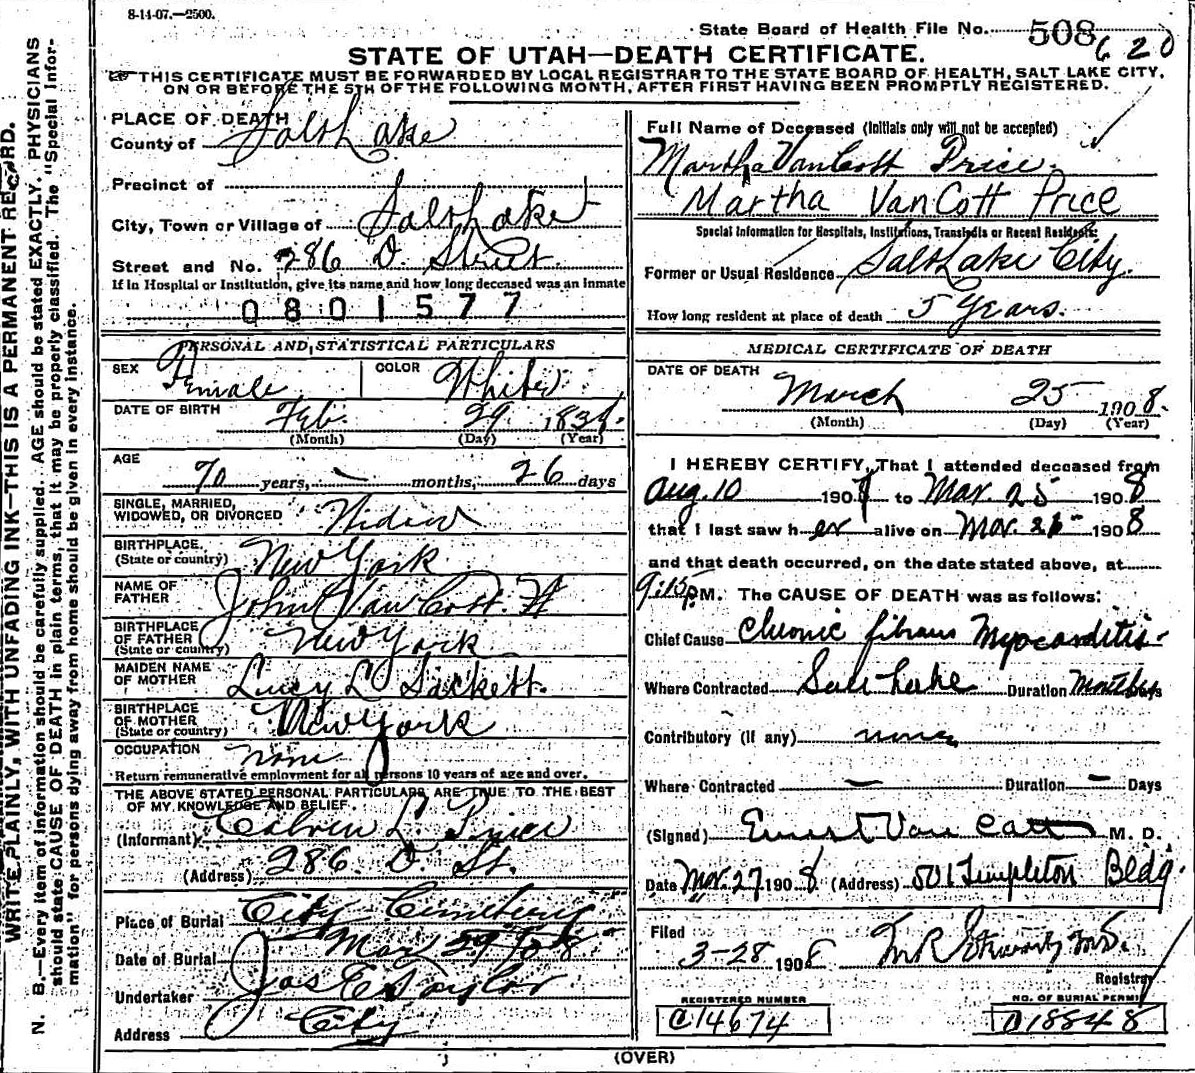 8-14-07.—2500.
State Board of Health File No. 508 620
STATE OF UTAH—DEATH CERTIFICATE.
THIS CERTIFICATE MUST BE FORWARDED BY LOCAL REGISTRAR TO THE STATE BOARD OF HEALTH, SALT LAKE CITY,
ON OR BEFORE THE 5TH OF THE FOLLOWING MONTH, AFTER FIRST HAVING BEEN PROMPTLY REGISTERED.
WRITE PLAINLY, WITH UNFADING INK—THIS IS A PERMANENT RECORD.
N. B.—Every item of information should be carefully supplied. AGE should be stated EXACTLY. PHYSICIANS
should state CAUSE OF DEATH in plain terms, that it may be properly classified. The "Special Infor-
mation" for persons dying away from home should be given in every instance.
PLACE OF DEATH
County of Salt Lake
Precinct of
City, Town or Village of Salt Lake
Street and No. 286 D. Street
If in Hospital or Institution, give its name and how long deceased was an inmate
0801577
PERSONAL AND STATISTICAL PARTICULARS
SEX Female COLOR White
DATE OF BIRTH Feb. 29 1838
(Month) (Day) (Year)
AGE
70 years, — months, 26 days
SINGLE, MARRIED,
WIDOWED, OR DIVORCED Widow
BIRTHPLACE
(State or country) New York
NAME OF
FATHER John Van Cott
BIRTHPLACE
OF FATHER
(State or country) New York
MAIDEN NAME
OF MOTHER Lucy L Sackett.
BIRTHPLACE
OF MOTHER
(State or country) New York
OCCUPATION none
Return remunerative employment for all persons 10 years of age and over.
THE ABOVE STATED PERSONAL PARTICULARS ARE TRUE TO THE BEST
OF MY KNOWLEDGE AND BELIEF.
(Informant) Calvin L. Price
(Address) 286 D. St.
Place of Burial City Cemetery
Date of Burial Mar 29/08
Undertaker Jos E Taylor
Address City
Full Name of Deceased (Initials only will not be accepted)
Martha VanCott Price.
Martha VanCott Price
Special Information for Hospitals, Institutions, Transients or Recent Residents:
Former or Usual Residence Salt Lake City.
How long resident at place of death 5 Years.
MEDICAL CERTIFICATE OF DEATH
DATE OF DEATH
March 25 1908.
(Month) (Day) (Year)
I HEREBY CERTIFY, That I attended deceased from
Aug. 10 1907 to Mar. 25 1908
that I last saw her alive on Mar. 25 1908
and that death occurred, on the date stated above, at
9:15 P.M. The CAUSE OF DEATH was as follows:
Chief Cause Chronic fibrous Myocarditis
Where Contracted Salt Lake Duration Months Days
Contributory (if any) none
Where Contracted — Duration — Days
(Signed) Ernest Van Cott M. D.
Date Mar. 27 1908 (Address) 501 Templeton Bldg.
Filed
3-28 1908
Registrar
REGISTERED NUMBER NO. OF BURIAL PERMIT
C14674 C18848
(OVER)